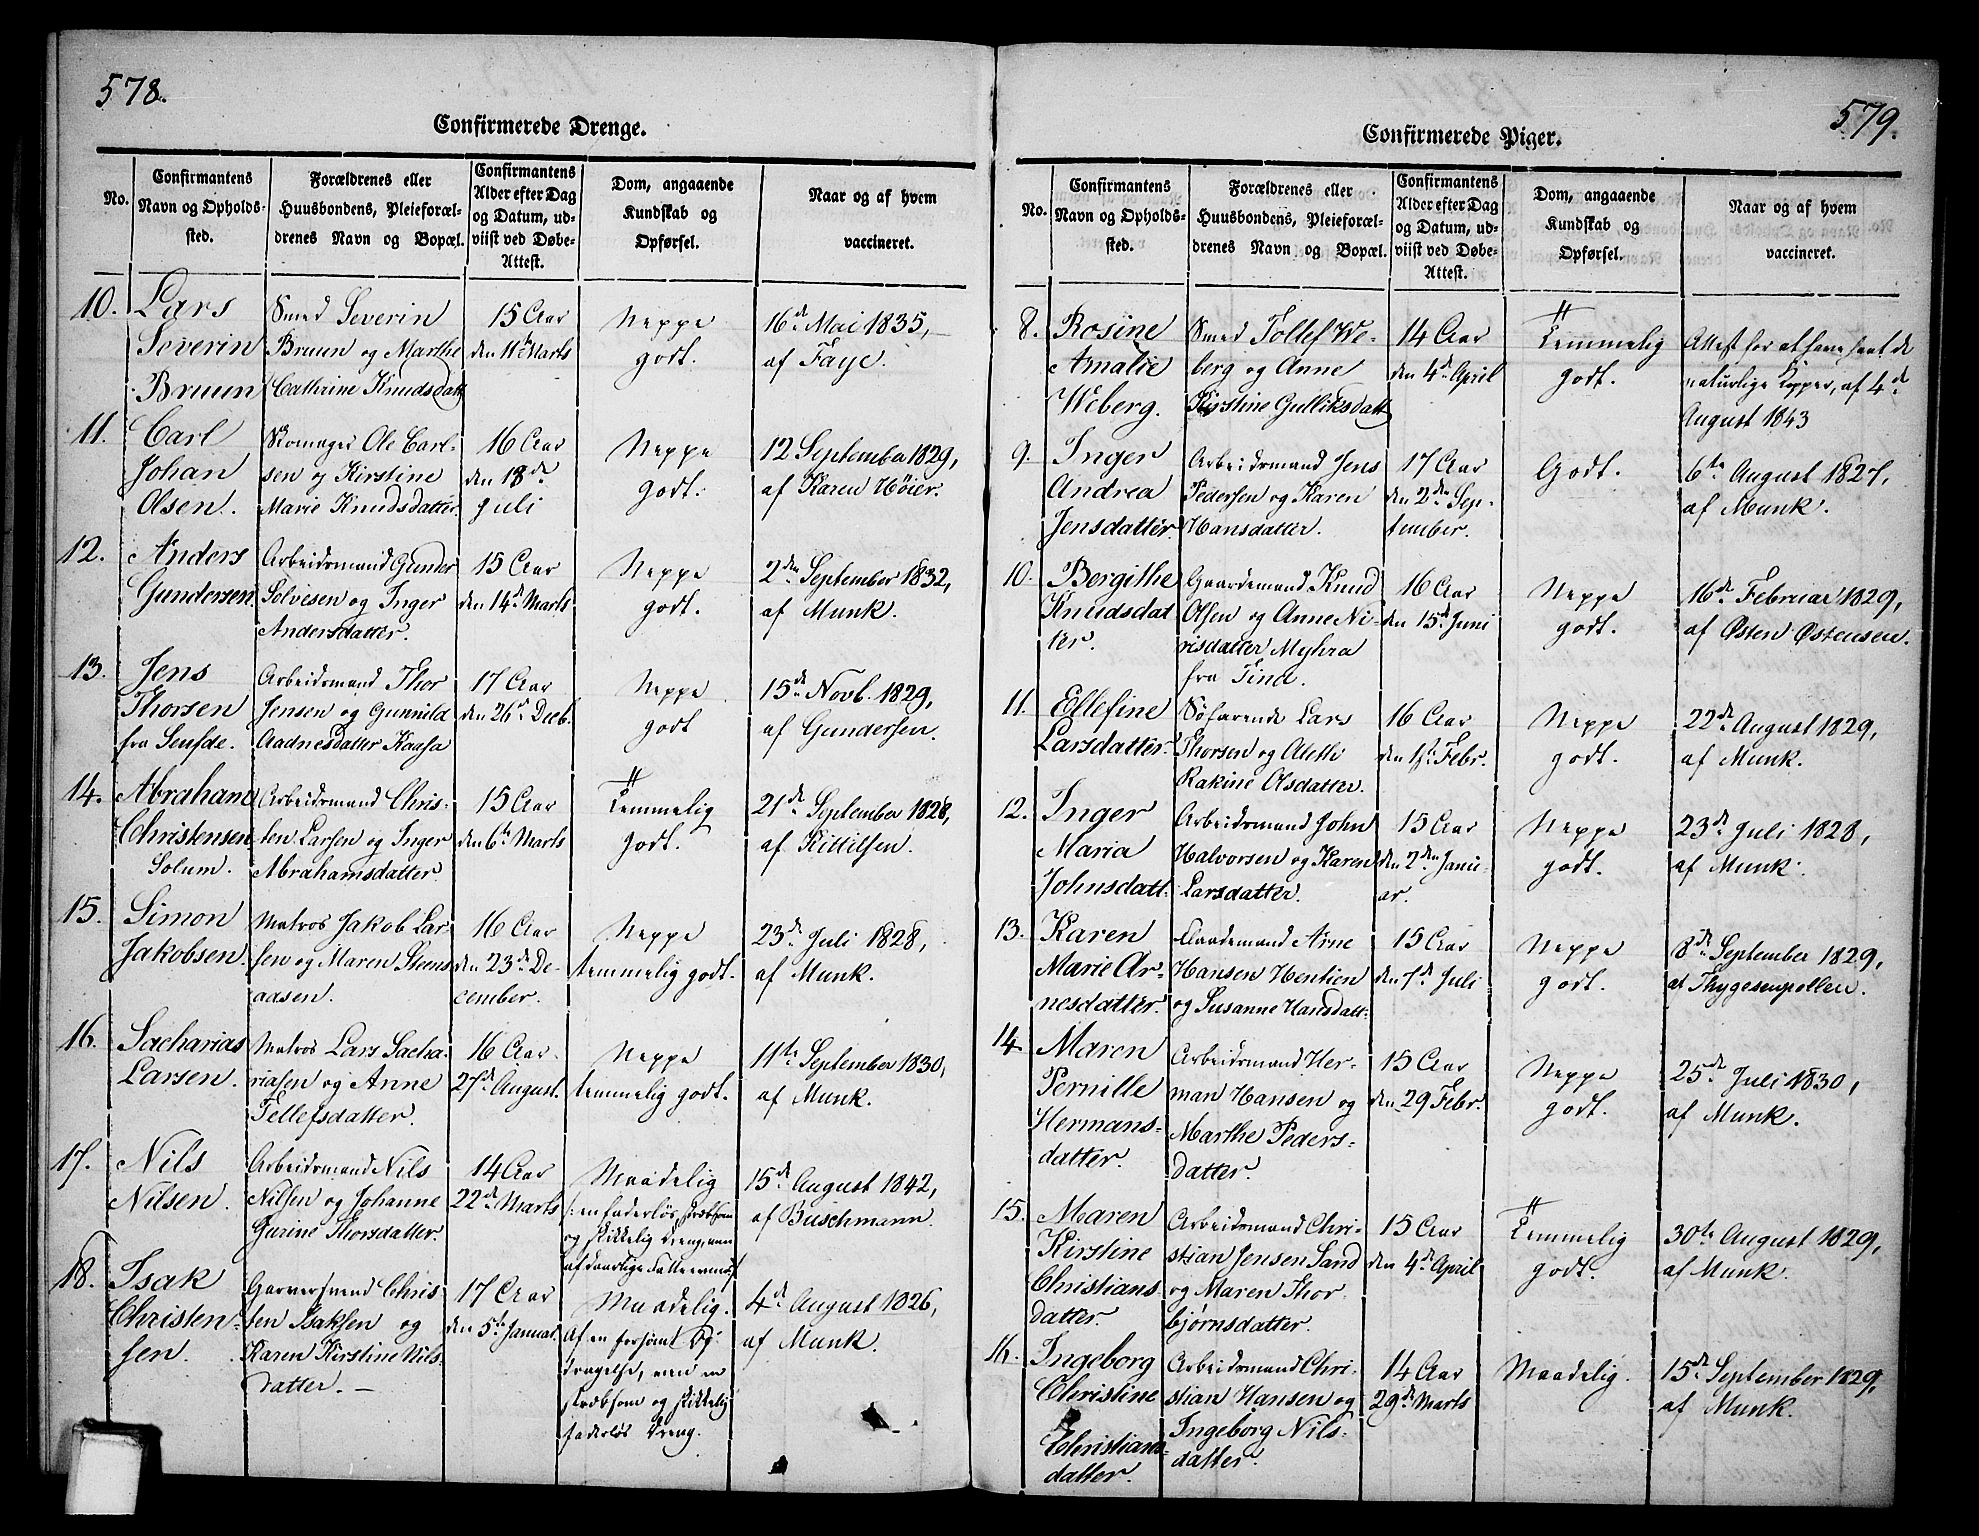 578.
Confirmerede Drenge.
No.
Confirmantens
Navn og Opholds-
sted.
Forældrenes eller
Huusbondens, Pleieforæl-
drenes Navn og Bopæl.
Confirmantens
Alder efter Dag
og Datum, ud-
viist ved Døbe-
Attest.
Dom, angaaende
Kundskab og
Opførsel.
Naar og af hvem
vaccineret.
10.
Lars
Severin
Bruun
Smed Severin
Bruun og Marthe
Cathrine Knudsdatt
15 Aar
den 11te Marts
Neppe
godt.
16de Mai 1835,
af Faye.
11.
Carl
Johan
Olsen.
Skomager Ole Carl-
sen og Kirstine
Marie Knudsdatter
16 Aar
den 18de
Juli
Neppe
godt.
12 September 1829,
af Karen Høier.
12.
Anders
Gundersen
Arbeidsmand Gunder
Solvesen og Inger
Andersdatter.
15 Aar
den 14de Marts
Neppe
godt.
2den September 1832,
af Munk.
13.
Jens
Thorsen
fra
Arbeidsmand Thor
Jensen og Gunnild
Aadnesdatter Kaasa
17 Aar
den 26de Decb.
Neppe
godt
15de Novb. 1829,
af Gundersen.
14.
Abraham
Christensen
Solum.
Arbeidsmand Chris-
ten Larsen og Inger
Abrahamsdatter
15 Aar
den 6te Marts
Temmelig
godt.
21de September 1828,
af Kittilsen.
15.
Simon
Jakobsen
Matros Jakob Lar-
sen og Maren Steens
aasen.
16 Aar
den 23de De-
cember.
Neppe
temmelig godt.
23de Juli 1828,
af Munk.
16.
Sacharias
Larsen.
Matros Lars Sacha-
riasen og Anne
Tellefsdatter.
16 Aar
27de August.
Neppe
temmelig godt.
11te September 1830,
af Munk.
17.
Nils
Nilsen.
Arbeidsmand Nils
Nilsen og Johanne
Gurine Thorsdatter.
14 Aar
22de Marts
Maadelig
/: en faderløs, stræbsom
og skikkelig Dreng, men
af daarlige
15de August 1842,
af Buschmann.
18.
Isak
Christen-
sen.
Garversvend Chris-
ten Isaksen og
Karen Kirstine Nils
datter. —
17 Aar
den 5te Januar.
Maadelig.
Af en forsømt Op-
dragelse, men en
stræbsom og skikkelig
faderløs Dreng.
4de August 1826,
af Munk.
579.
Confirmerede Piger.
No.
Confirmantens
Navn og Opholds-
sted.
Forældrenes eller
Huusbondens, Pleieforæl-
drenes Navn og Bopæl.
Confirmantens
Alder efter Dag
og Datum, ud-
viist ved Døbe-
Attest.
Dom, angaaende
Kundskab og
Opførsel.
Naar og af hvem
vaccineret.
8.
Rosine
Amalie
Weberg.
Smed Tollef We-
berg og Anne
Kirstine Gulliksdatt
14 Aar
den 4de April
Temmelig
godt.
Attest for at have havt de
naturlige Kopper, af 4de
August 1843
9.
Inger
Andrea
Jensdatter.
Arbeidsmand Jens
Pedersen og Karen
Hansdatter.
17 Aar
den 2den Sep-
tember.
Godt.
6te August 1827,
af Munk.
10.
Bergithe
Knudsdat
ter.
Gaardemand Knud
Olsen og Anne Ni-
risdatter Myhra
fra Tind.
16 Aar
den 15de Juni
Neppe
godt.
16de Februar 1829,
af Østen Østensen.
11.
Ellefine
Larsdatter.
Søfarende Lars
Thorsen og
Rakine Olsdatter.
16 Aar
den 1ste Febr.
Neppe
godt.
22de August 1829,
af Munk.
12.
Inger
Maria
Johnsdatt.
Arbeidsmand John
Halvorsen og Karen
Larsdatter.
15 Aar
den 2den Janu-
ar.
Neppe
godt.
23de Juli 1828,
af Munk.
13.
Karen
Marie Ar-
nesdatter.
Arne
Hansen Hentien
og Susanne Hansdatt.
15 Aar
den 7de Juli
Neppe
godt.
8de September 1829,
af Thygesenpollen.
14.
Maren
Pernille
Hermans-
datter.
Arbeidsmand Her-
man Hansen og
Marthe Peders-
datter.
15 Aar
den 29 Febr.
Neppe
godt.
25de Juli 1830,
af Munk.
15.
Maren
Kirstine
Christians
datter.
Arbeidsmand Chri-
stian Jensen Sand
og Maren Thor
bjørnsdatter.
15 Aar
den 4de April
Temmelig
godt.
30te August 1829,
af Munk.
16.
Ingeborg
Christine
Christians-
datter.
Arbeidsmand Chri-
stian Hansen og
Ingeborg Nils-
datter.
14 Aar
29de Marts
Maadelig.
15de September 1829,
af Munk.